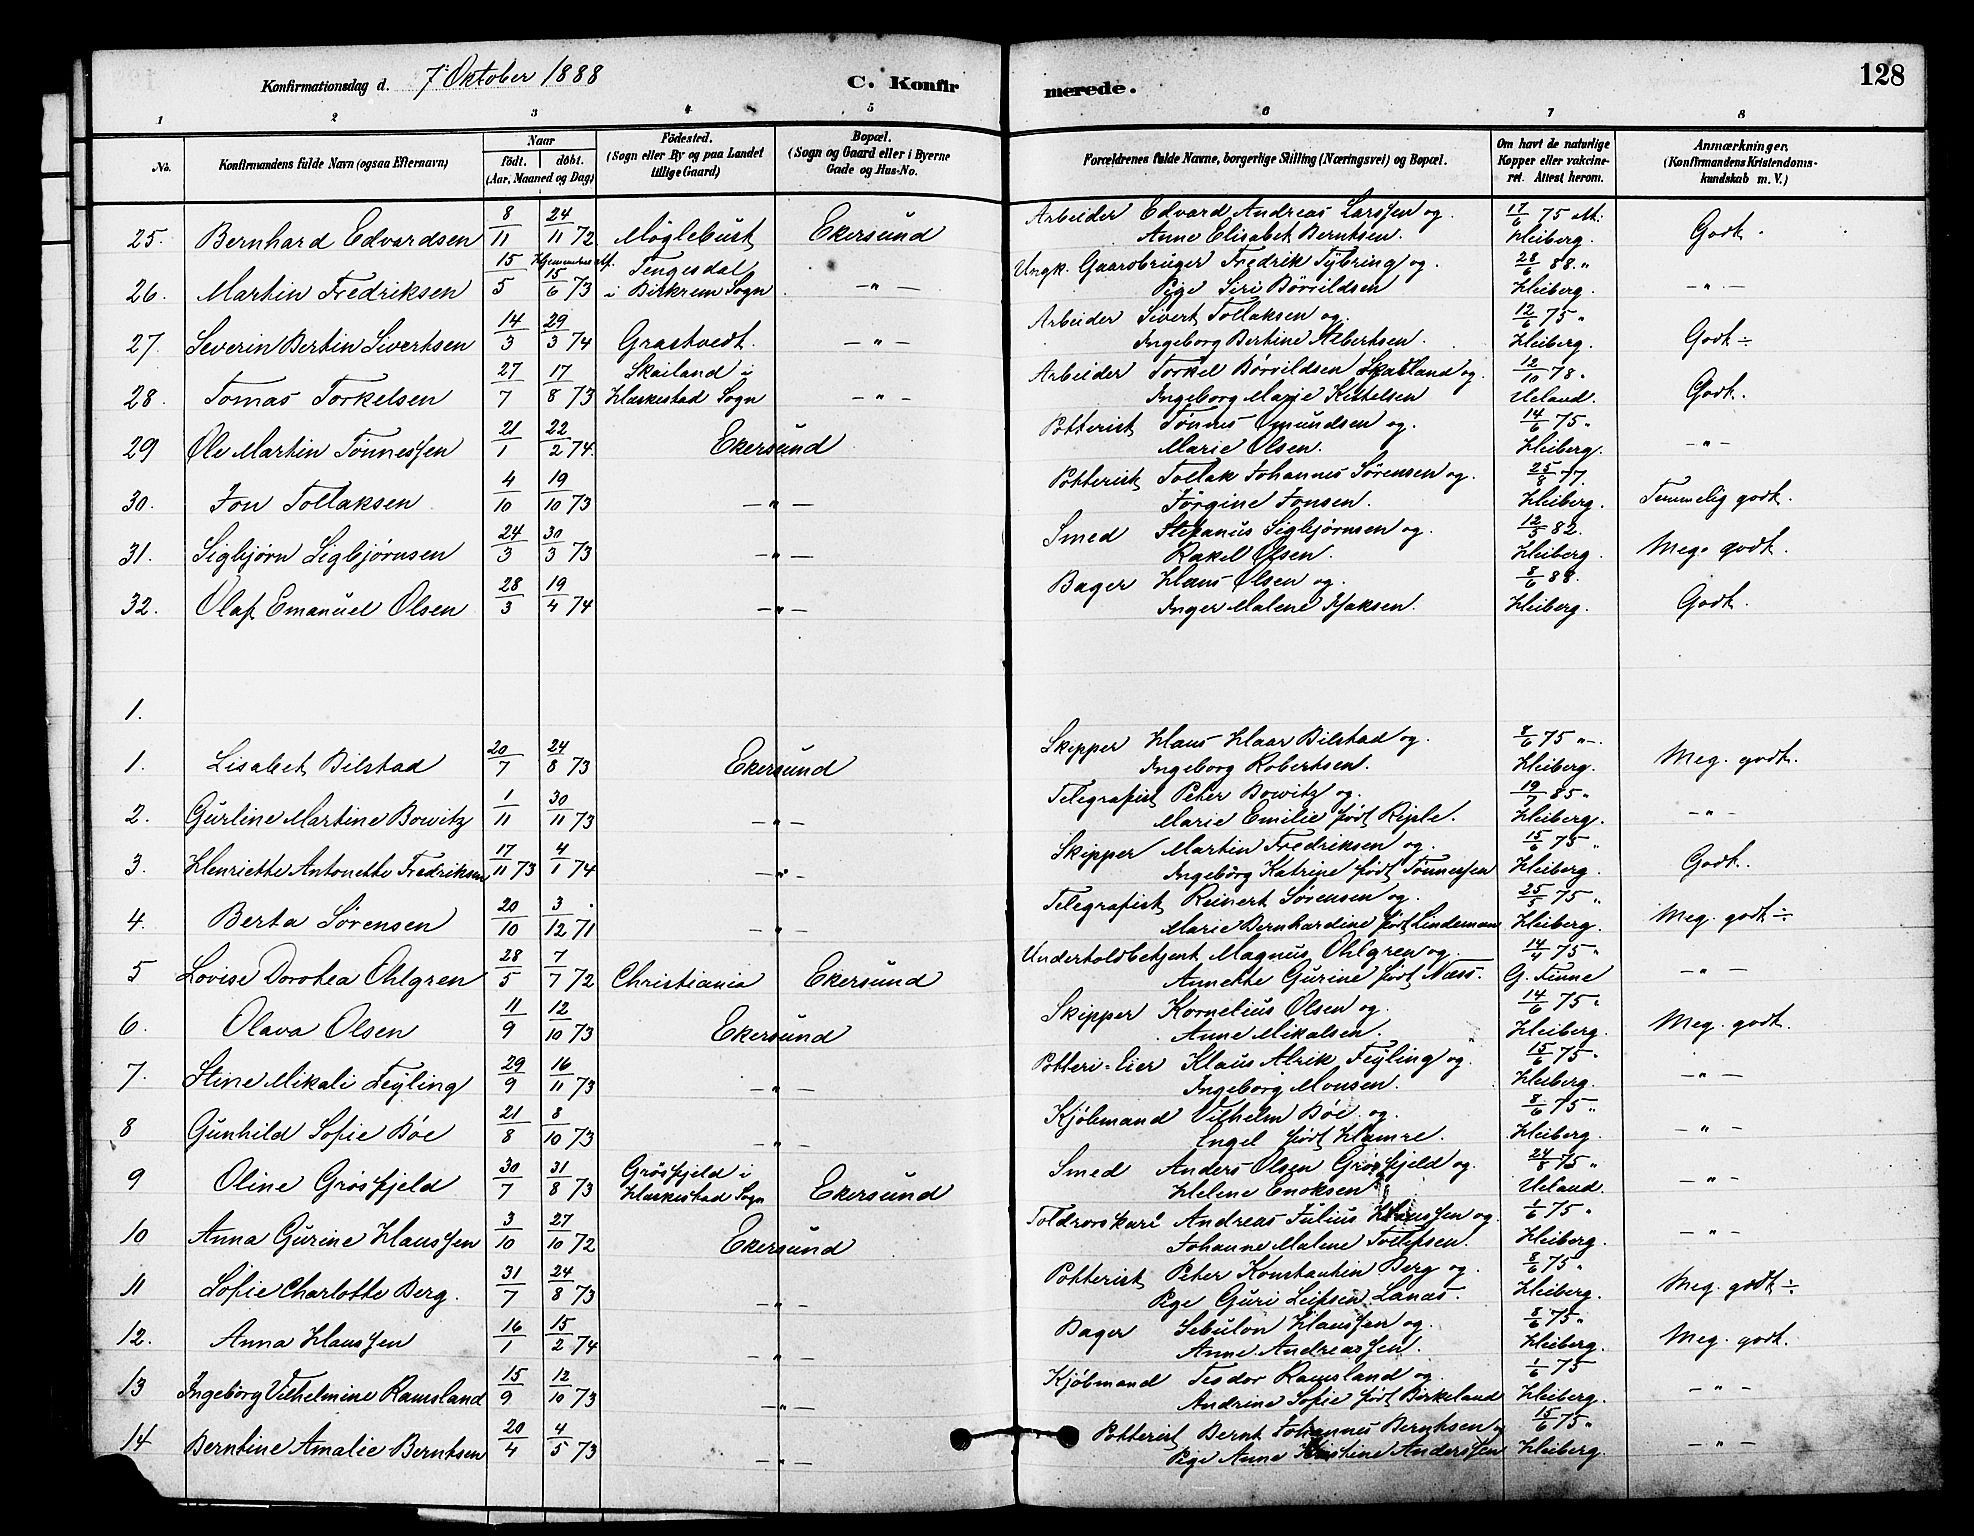 Konfirmationsdag d. 7' Oktober 1888 C. Konfirmerede. 128
1 2 3 4 5 6 7 8
No. Konfirmandens fulde Navn (ogsaa Efternavn) Naar født. døbt. (Aar, Maaned og Dag) Fødested. (Sogn eller By og paa Landet tillige Gaard) Bopæl. (Sogn og Gaard eller i Byerne Gade og Hus-No. Forældrenes fulde Navne, borgerlige Stilling (Næringsvei) og Bopæl. Om havt de naturlige Kopper eller vakcineret. Attest herom. Anmærkninger, (Konfirmandens Kristendomskundskab m. V.)
25. Bernhard Edvardsen 8/11 24/11 72 Møglebust Ekersund Arbeider Edvard Andreas Larssen og 17/6 75 Godt.
Anne Elisabet Berntsen. Heiberg.
26. Martin Fredriksen 15/5 15/6 73 Tengesdal Ungk. Gaardbruger Fredrik Tybring og 28/6 88. "
i Birkrem Sogn - " - Pige Siri Børildsen Heiberg. - " -
27. Severin Bertin Sivertsen 14/3 29/3 74 Grastvedt. - " - Arbeider Sivert Tollaksen og 12/6 75 " Godt ÷
Ingeborg Bertine Albertsen. Heiberg.
28. Tomas Torkelsen 27/7 17/8 73 Skailand i Arbeider Torkel Børildsen Skatland og 12/10 78. Godt.
Heskestad Sogn - " - Ingeborg Marie Ketelsen Ueland.
29 Ole Martin Tønnessen 21/1 22/2 74. Ekersund Potterist Tønnes Omundsen og 14/6 75 "
Marie Olsen. Heiberg. - " -
30. Jon Tollaksen 4/10 19/10 73 - " - Potterist Tollak Johannes Sørensen og 25/8 77. Temmelig godt.
Jørgine Jonsen. Heiberg.
31. Sigbjørn Sigbjørnsen 24/3 30/3 73 - " - Smed Stefanus Sigbjørnsen og 12/5 82. Meg. godt.
Rakel Olsen. Heiberg.
32. Olaf Emanuel Olsen 28/3 19/4 74 - " - Bager Hans Olsen og 8/6 88. Godt.
Inger Malene Isaksen. Heiberg.
1.
1. Lisabet Bilstad 20/7 24/8 73 Ekersund Skipper Hans Haar Bilstad og 8/6 75 " Meg. godt.
Ingeborg Robertsen. Heiberg.
2. Gurline Martine Bowitz 1/11 30/11 73 - " - Telegrafist Peter Bowitz og 19/7 85 " - " -
Marie Emilie født Riple. Heiberg.
3. Henriette Antonette Fredriksen 17/11 73 4/1 74 - " - Skipper Martin Fredriksen og 15/6 75 " Godt.
Ingeborg Katrine født Tønnessen Heiberg.
4. Berta Sørensen 20/10 3/12 71 - " - Telegrafist Reinert Sørensen og 25/5 75 " Meg. godt ÷
Marie Bernhardine født Lindeman Heiberg.
5 Lovise Dorothea Ohlgren 28/5 7/7 72 Christiania Ekersund Underholdbetjent Magnus Ohlgren og 14/4 75 " - " -
Annette Gurine født Næss. G. Finne
6. Olava Olsen 11/9 12/10 73 Ekersund Skipper Kornelius Olsen og 14/6 75 " Meg. godt.
Anne Mikalsen. Heiberg.
7. Stine Mikali Feyling 29/9 16/11 73 - " - Potteri-Eier Klaus Alrik Feyling og 15/6 75 " - " -
Ingeborg Monsen. Heiberg.
8 Gunhild Sofie Bøe 21/8 8/10 73 - " - Kjøbmand Vilhelm Bøe og 8/6 75 " - " -
Engel født Hamre. Heiberg.
9 Oline Grøsfjeld 30/7 31/8 73 Grøsfjeld i Smed Anders Olsen Grøsfjeld og 24/8 75 " - " -
Heskestad Sogn Ekersund Helene Enoksen Ueland.
10 Anna Gurine Hanssen 3/10 27/10 72 Ekersund Toldrorskarl Andreas Julius Hanssen og 1/6 75 " - " -
Johanne Malene Tollefsen. Heiberg.
11 Sofie Charlotte Berg. 31/7 24/8 73 - " - Potterist Peter Konstantin Berg og 8/6 75 " Meg. godt ÷
Pige Guri Leifsen Lanes. Heiberg.
12. Anna Hanssen 16/1 15/2 74 - " - Bager Sebulon Hanssen og 8/6 75 " Meg. godt.
Anne Andreassen. Heiberg.
13 Ingeborg Vilhelmine Ramsland 15/9 12/10 73 - " - Kjøbmand Tesdor Ramsland og 1/6 75 - " -
Andrine Sofie født Birkeland Heiberg.
14 Berntine Amalie Berntsen 20/4 4/5 73 - " - Potterist Bernt Johannes Berntsen og 15/6 75 " - " -
Pige Anne Kristine Anderssen Heiberg.